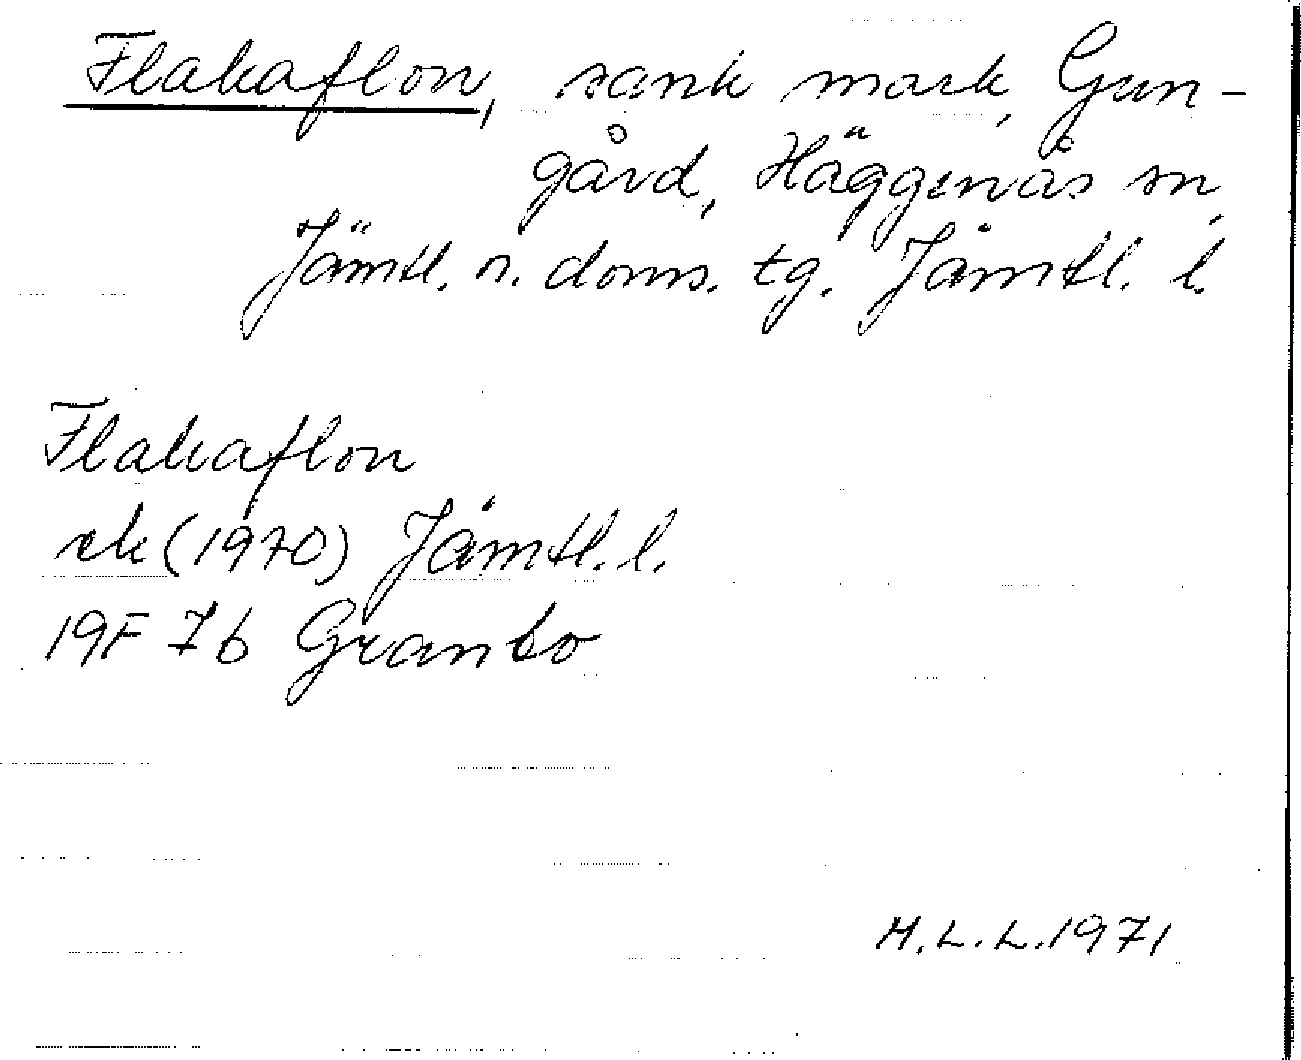 Flakaflon, sank mark, Gun-
gård, Häggenås sn,
Jämtl. n. doms. tg. Jämtl. l.
Flakaflon
ek (1970) Jämtl. l.
19F 7b Granbo
H.L.L. 1971